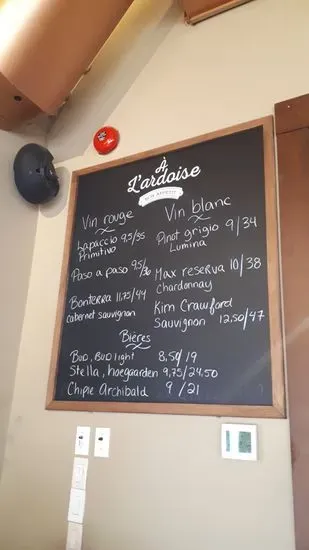 À
L'ardoise
BON APPÉTIT
Vin rouge
Lapaccio 9,5/35
Primitivo
Paso a paso 9,5/36
Bonterra 11,75/44
Cabernet sauvignon
Vin blanc
Pinot grigio 9/34
Lumina
Max reserva 10/38
Chardonnay
Kim Crawford
Sauvignon 12,50/47
Bières
Bud, Bud light 8,50/19
Stella, hoegaarden 9,75/24,50
Chipie Archibald 9/21